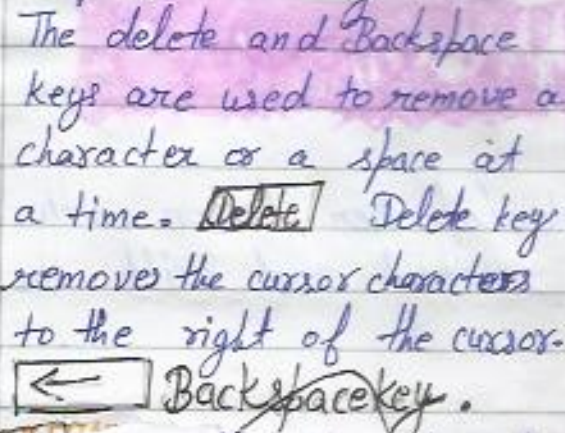 The delete and Backspace
keys are used to remove a
character or a space at
a time. Delete Delete key
removes the cursor characters
to the right of the cursor.
← Backspace key.